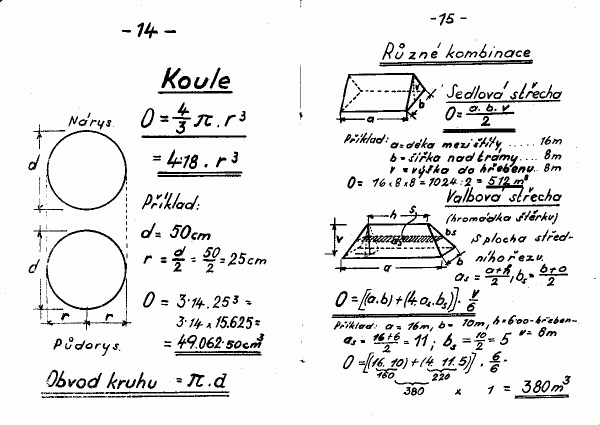 - 14 -
Koule
Nárys.
O = 4/3 π . r³
= 4·18 . r³
d
Příklad:
d = 50 cm
r = d/2 = 50/2 = 25 cm
d
O = 3·14 . 25³ =
3·14 x 15.625 =
= 49.062·50 cm³
r r
Půdorys.
Obvod kruhu = π . d
- 15 -
Různé kombinace
v
b
a
Sedlová střecha
O = a . b . v / 2
Příklad: a = délka mezi štíty, ...... 16m
b = šířka nad trámy .... 8m
v = výška do hřebenu.. 8m
O = 16 x 8 x 8 = 1024 : 2 = 512 m³
Valbová střecha
(hromádka štěrku)
h s
v
as bs
b
a
S plocha střed-
ního řezu.
as = a+h/2, bs = b+o/2
O = [(a.b) + (4. as. bs)] . v/6
Příklad: a = 16m, b = 10m, h = 6·00 - hřeben -
as = 16+6/2 = 11 ; bs = 10/2 = 5 v = 6m
O = [(16. 10) + (4. 11. 5)] . 6/6 -
160 220
380 x 1 = 380 m³